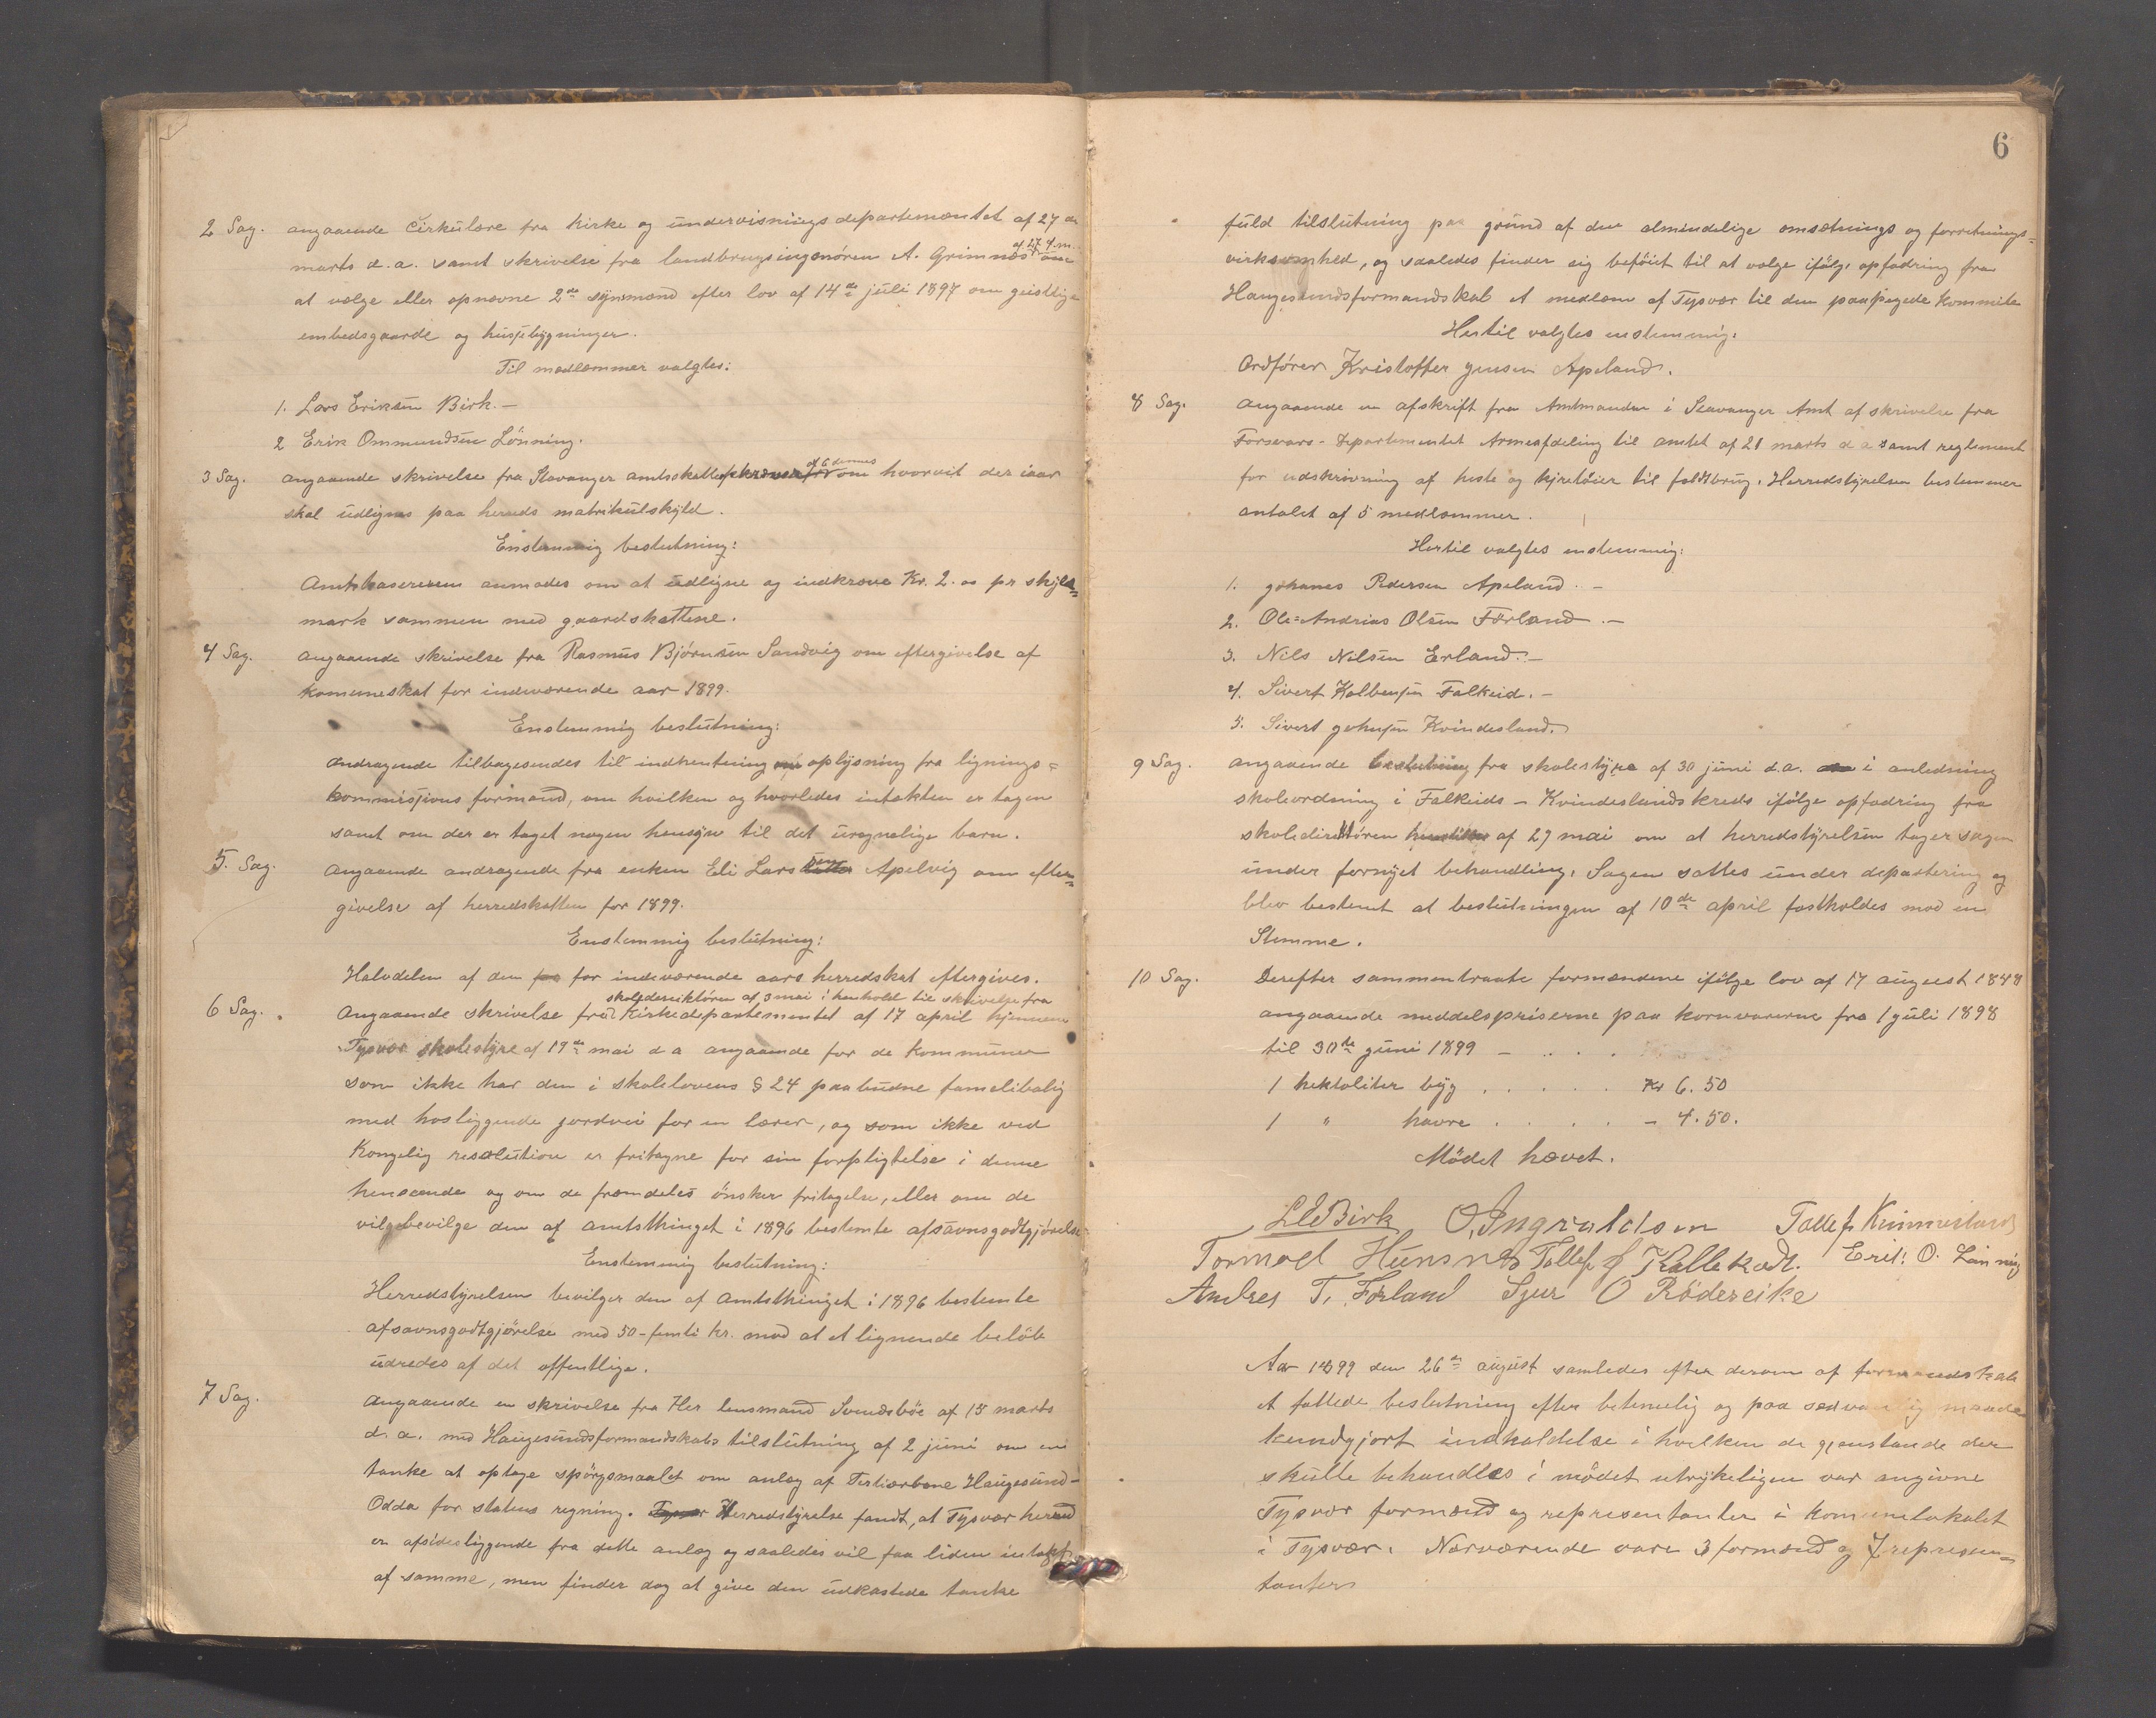 2 Sag. angaaende Cirkulære fra Kirke og undervisnings departementet af 27de
marts d.a. samt skrivelse fra landbrugsingenøren A. Grimnæs af 27 f.m. om
at vælge eller opnævne 2de synsmænd efter lov af 14de juli 1897 om geistlige
embedsgaarde og husebygninger.
Til medlemmer valgtes:
1. Lars Eriksen Birk. –
2 Erik Ommundsen Lönning.
3 Sag. angaaende skrivelse fra Stavanger amtsskatteopkræver af 6 dennes om hvorvit der iaar
skal udlignes paa herreds matrikulskyld.
Enstemmig beslutning:
Amtskasereren anmodes om at udligne og indkræve Kr. 2.00 pr skyld=
mark sammen med gaardskattene.
4 Sag. angaaende skrivelse fra Rasmus Björnsen Sandvig om eftergivelse af
komuneskat for indeværende aar 1899.
Enstemmig beslutning:
Andragende tilbagesendes til indhentning oplysning fra lignings=
kommisjions formand, om hvilken og hvorledes intækten er tagen
samt om der er taget nogen hensyn til det urognelige barn.
5. Sag. Angaaende andragende fra enken Eli Larsen Apelvig om efter=
givelse af herredskatten for 1899.
Enstemmig beslutning:
Halvdelen af den for indeværende aars herredskat eftergives.
skoledirektören af 3 mai i henhold til skrivelse fra
6 Sag. Angaaende skrivelse fra Kirkedepartementet af 17 april hjemmene
Tysvær skolestyre af 19de mai d a angaaende for de kommuner
som ikke har den i skolelovens § 24 paabudne famelibolig
med hosliggende jordvei for en lærer, og som ikke ved
Kongelig resolution er fritagne for sin forpligtelse i denne
henseende og om de fremdeles önsker fritagelse, eller om de
vil bevilge den af amtsthinget i 1896 bestemte afsavnsgodtgjörelse
Enstemmig beslutning:
Herredstyrelsen bevilger den af Amtsthinget i 1896 bestemte
afsavnsgodtgjörelse med 50 – femti kr. mod at et lignende belöb
udredes af det offentlige.
7 Sag. Angaaende en skrivelse fra Her lensmand Svendsböe af 15 marts
d.a. med Haugesundsformandskabs tilslutning af 2 juni om en
tanke at optage spörgsmaalet om anlæg af Tertiærbane Haugesund–
Odda for statens regning. Herredstyrelse fandt, at Tysvær herred
er afsidesliggende fra dette anlæg og saaledes vil faa liden intækt
af samme, men finder dog at give den udkastede tanke
6
fuld tilslutning paa grund af den almindelige omsætnings og forretnings=
virksomhed, og saaledes finder sig beföiet til at vælge ifölge opfodring fra
Haugesundsformandskab et medlem af Tysvær til den paapegede Kommite
Hertil valgtes enstemmig:
Ordförer Kristoffer Jensen Apeland.
8 Sag. Angaaende en afskrift fra Amtmanden i Stavanger Amt af skrivelse fra
Forsvars – Departementet Armeafdeling til amtet af 21 marts d a samt reglement
for udskrivning af heste og kjretöier til feldtbrug. Herredstyrelsen bestemmer
antalet af 5 medlemmer.
Hertil valgtes enstemmig:
1. Johanes Pedersen Apeland. –
2. Ole=Andrias Olsen Förland. –
3. Nils Nilsen Erland. –
4. Sivert Kolbensen Falkeid. –
5. Sivert Johnsen Kvindesland.
9 Sag. angaaende beslutning fra skolestyre af 30 juni d.a. i anledning
skoleordning i Falkeids – Kvindeslands kreds ifölge opfodring fra
skoledirektören af 29 mai om at herredstyrelsen tager sagen
under fornyet behandling. Sagen sattes under depattering og
blev bestemt at beslutningen af 10de april fastholdes mod en
Stemme.
10 Sag. Derefter sammentraate formændene ifölge lov af 17 august 1848
angaaende meddelspriserne paa kornvarerne fra 1 juli 1898
til 30de juni 1899 – . . .
1 hektoliter byg . . . . . Kr 6.50
1 " havre . . . . . – 4.50.
Mödet hævet.
L E Birk O. Ingvaldsen Tollef Kimmesland
Tormod Hunsnes Tollef J Kallekodt. Erik O. Lönning
Andres T. Förland Sjur O Rödereike
Aar 1899 den 26de august samledes efter derom af formandskab
et fattede beslutning efter betimelig og paa sedvanlig maade
kundgjort indkaldelse i hvilken de gjenstande der
skulle behandles i mödet utrykeligen var angivne
Tysvær formænd og representanter i Komunelokalet
i Tysvær. Nærværende vare 3 formænd og 7 represen=
tanter